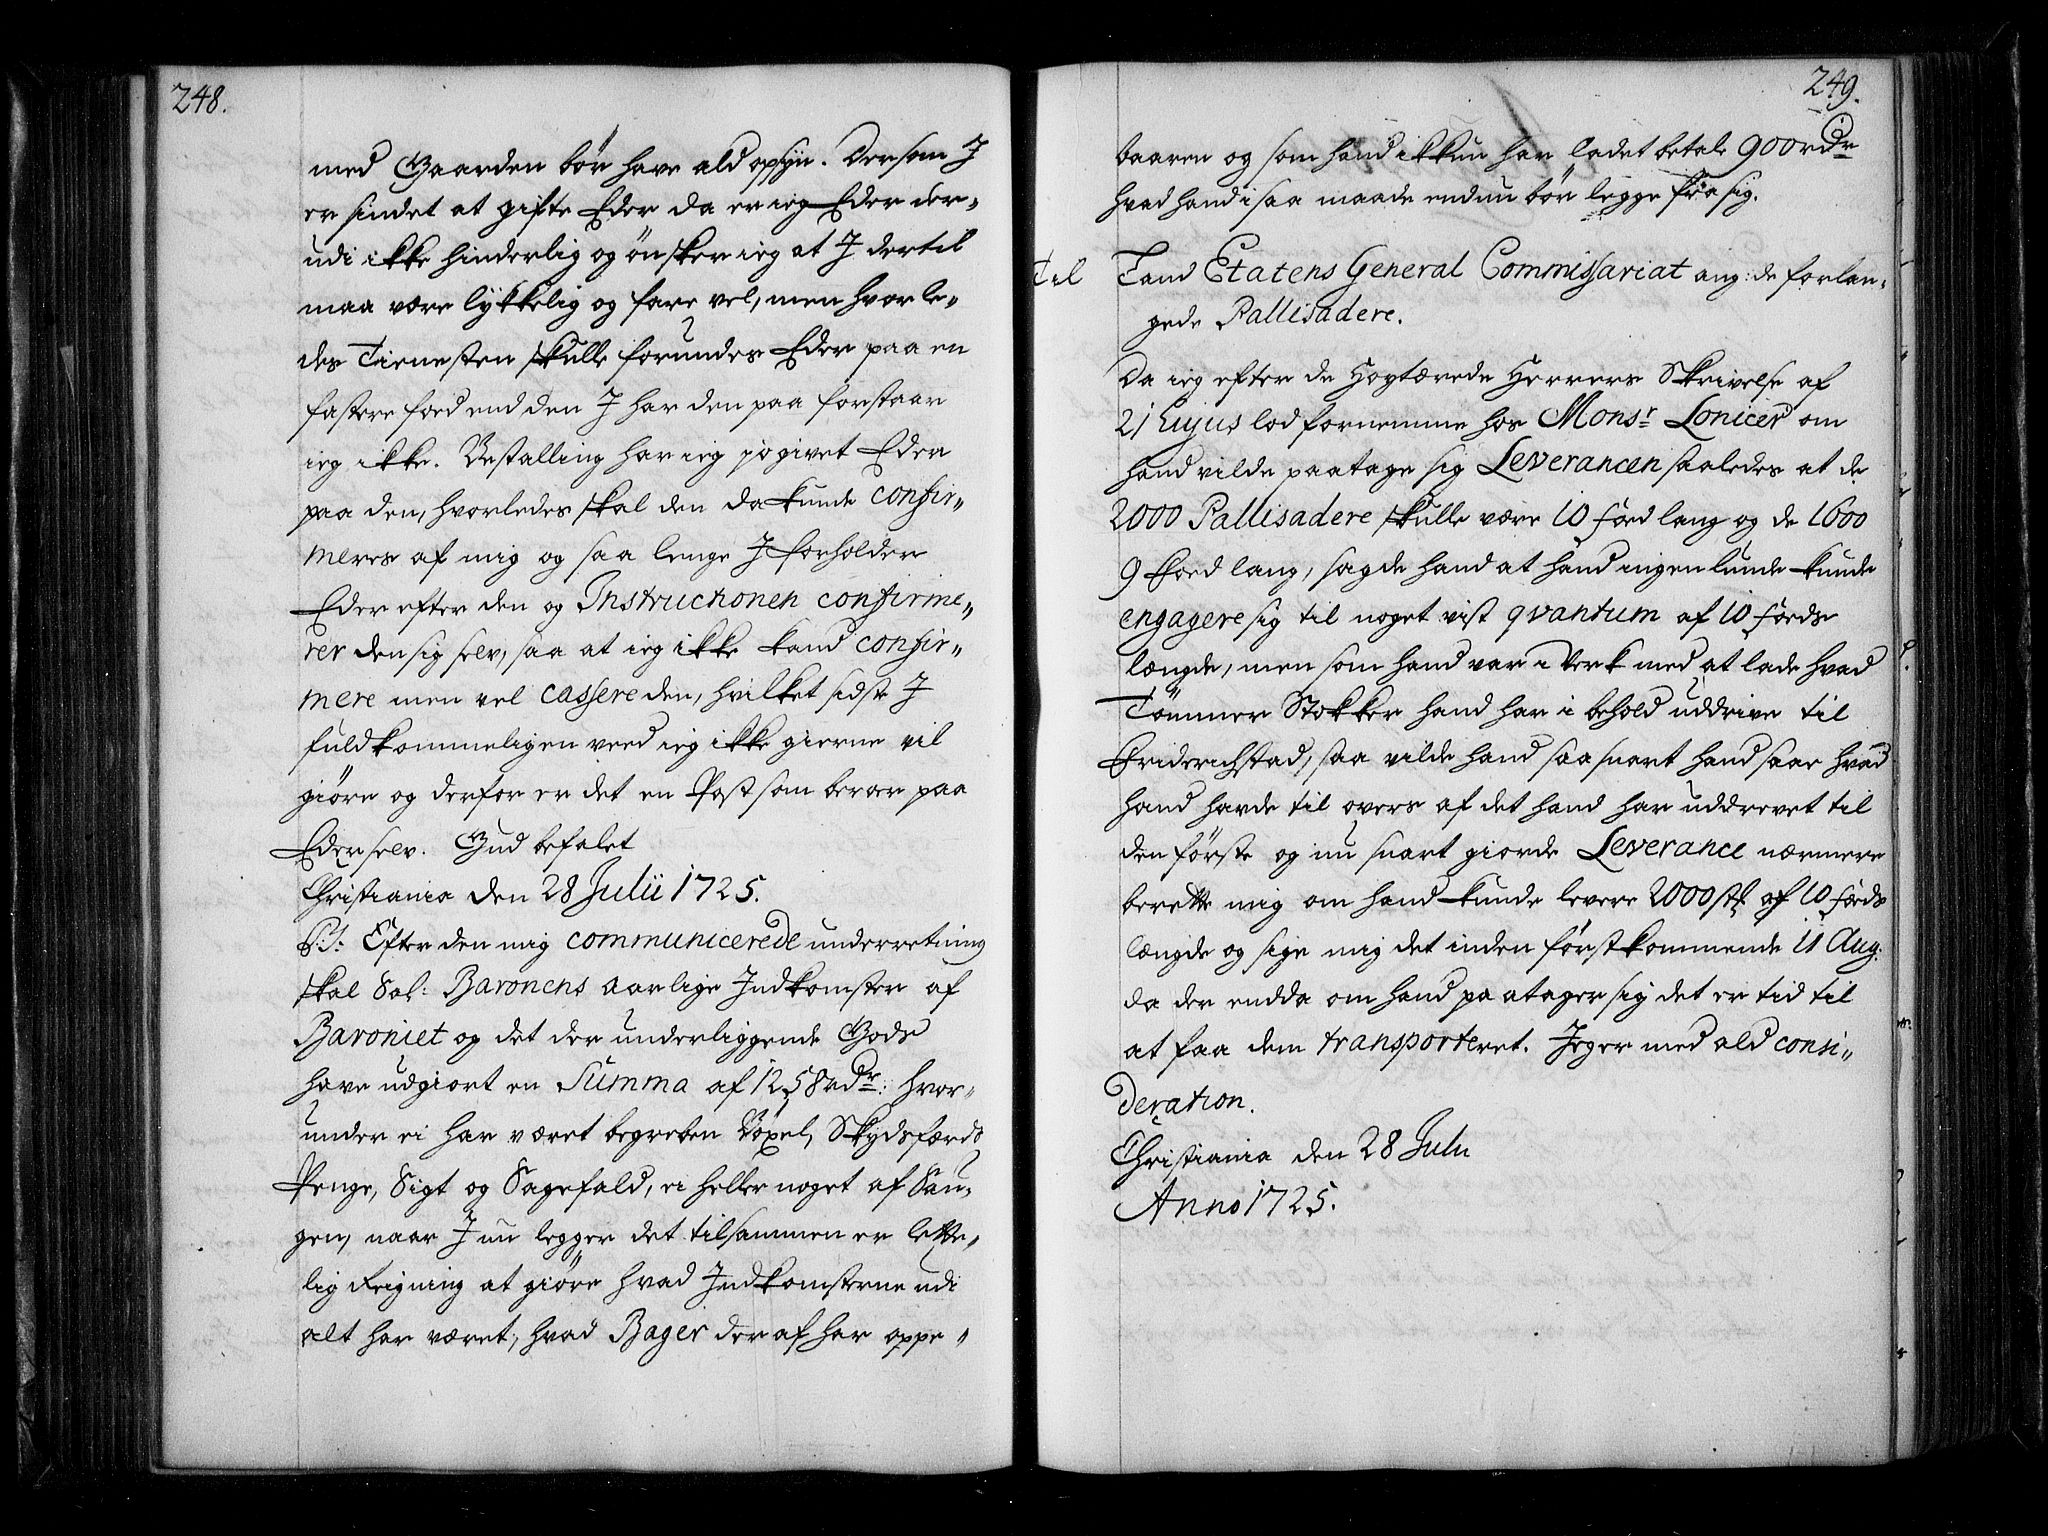 248.
med Gaarden bør have ald opsyn. Dersom J
er sindet at gifte Eder da er ieg Eder der„
udi ikke hinderlig og ønsker ieg at J dertil
maa være lykkelig og fare vel, men hvorle„
des Tienesten skulle forundes Eder paa en
fastere foed end den J har den paa forstaar
ieg ikke. Bestalling har ieg jo givet Eder
paa den, hvorledes skal den da kunde confir„
meres af mig og saa lenge J forholder
Eder efter den og Instructionen confirme„
rer den sig selv, saa at ieg ikke kand confir„
mere men vel cassere den, hvilket sidste J
fuldkommeligen veed ieg ikke gierne vil
giøre og derfor er det en Post som beroer paa
Eder selv. Gud befalet
Christiania den 28 Julii 1725.
P.S: Efter den mig communicerede underretning
skal Sal: Baronens aarlige Indkomster af
Baroniet og det der underliggende Gods
have udgiort en Summa af 1258 rdr: hvor„
under ei har været begreben Bøxel, Skydsferds
Penge, Sigt og Sagefald, ei heller noget af Sau„
gen, naar J nu legger det tilsammen er lette„
lig Reigning at giøre hvad Indkomsterne udi
alt har været, hvad Bager der af har oppe„
249.
baaren og som hand ikkun har ladet betale 900 rdr
hvad hand i saa maade endnu bør legge fra sig.
Til Land Etatens General Commissariat ang: de forlan„
gede Pallisadere.
Da ieg efter de Høytærede Herrers Skrivelse af
21 hujus lod fornemme hos Monsr Lonicer om
hand vilde paatage sig Leverancen saaledes at de
2000 Pallisadere skulle være 10 foed lang og de 1600
9 Foed lang, sagde hand at hand ingenlunde kunde
engagere sig til noget vist qvantum af 10 foeds
længde, men som hand var i Verk med at lade hvad
Tømmer Stokker hand har i behold uddrive til
Friderichstad, saa vilde hand saa snart hand saae hvad
hand havde til overs af det hand har uddrevet til
den første og nu snart giorde Leverance nærmere
berette mig om hand kunde levere 2000 stk af 10 foeds
længde og sige mig det inden førstkommende 11 Aug:
da der endda om hand paatager sig det er tid til
at faa dem transporteret. Jeg er med ald consi„
deration.
Christiania den 28 Julii
Anno 1725.